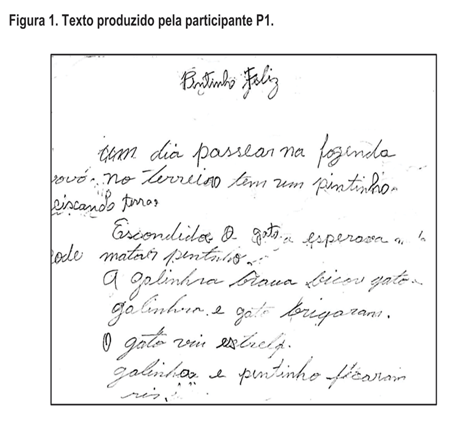 Figura 1. Texto produzido pela participante P1.
Pintinho Feliz
um dia passear na fazenda
vovó. no terreiro tem um pintinho
ciscando terra
Escondido O gato a esperava
pode matar pintinho.
A galinhra brava bicou gato.
galinhra e gato brigaram.
O gato viu estrela.
galinhas e pintinho ficaram